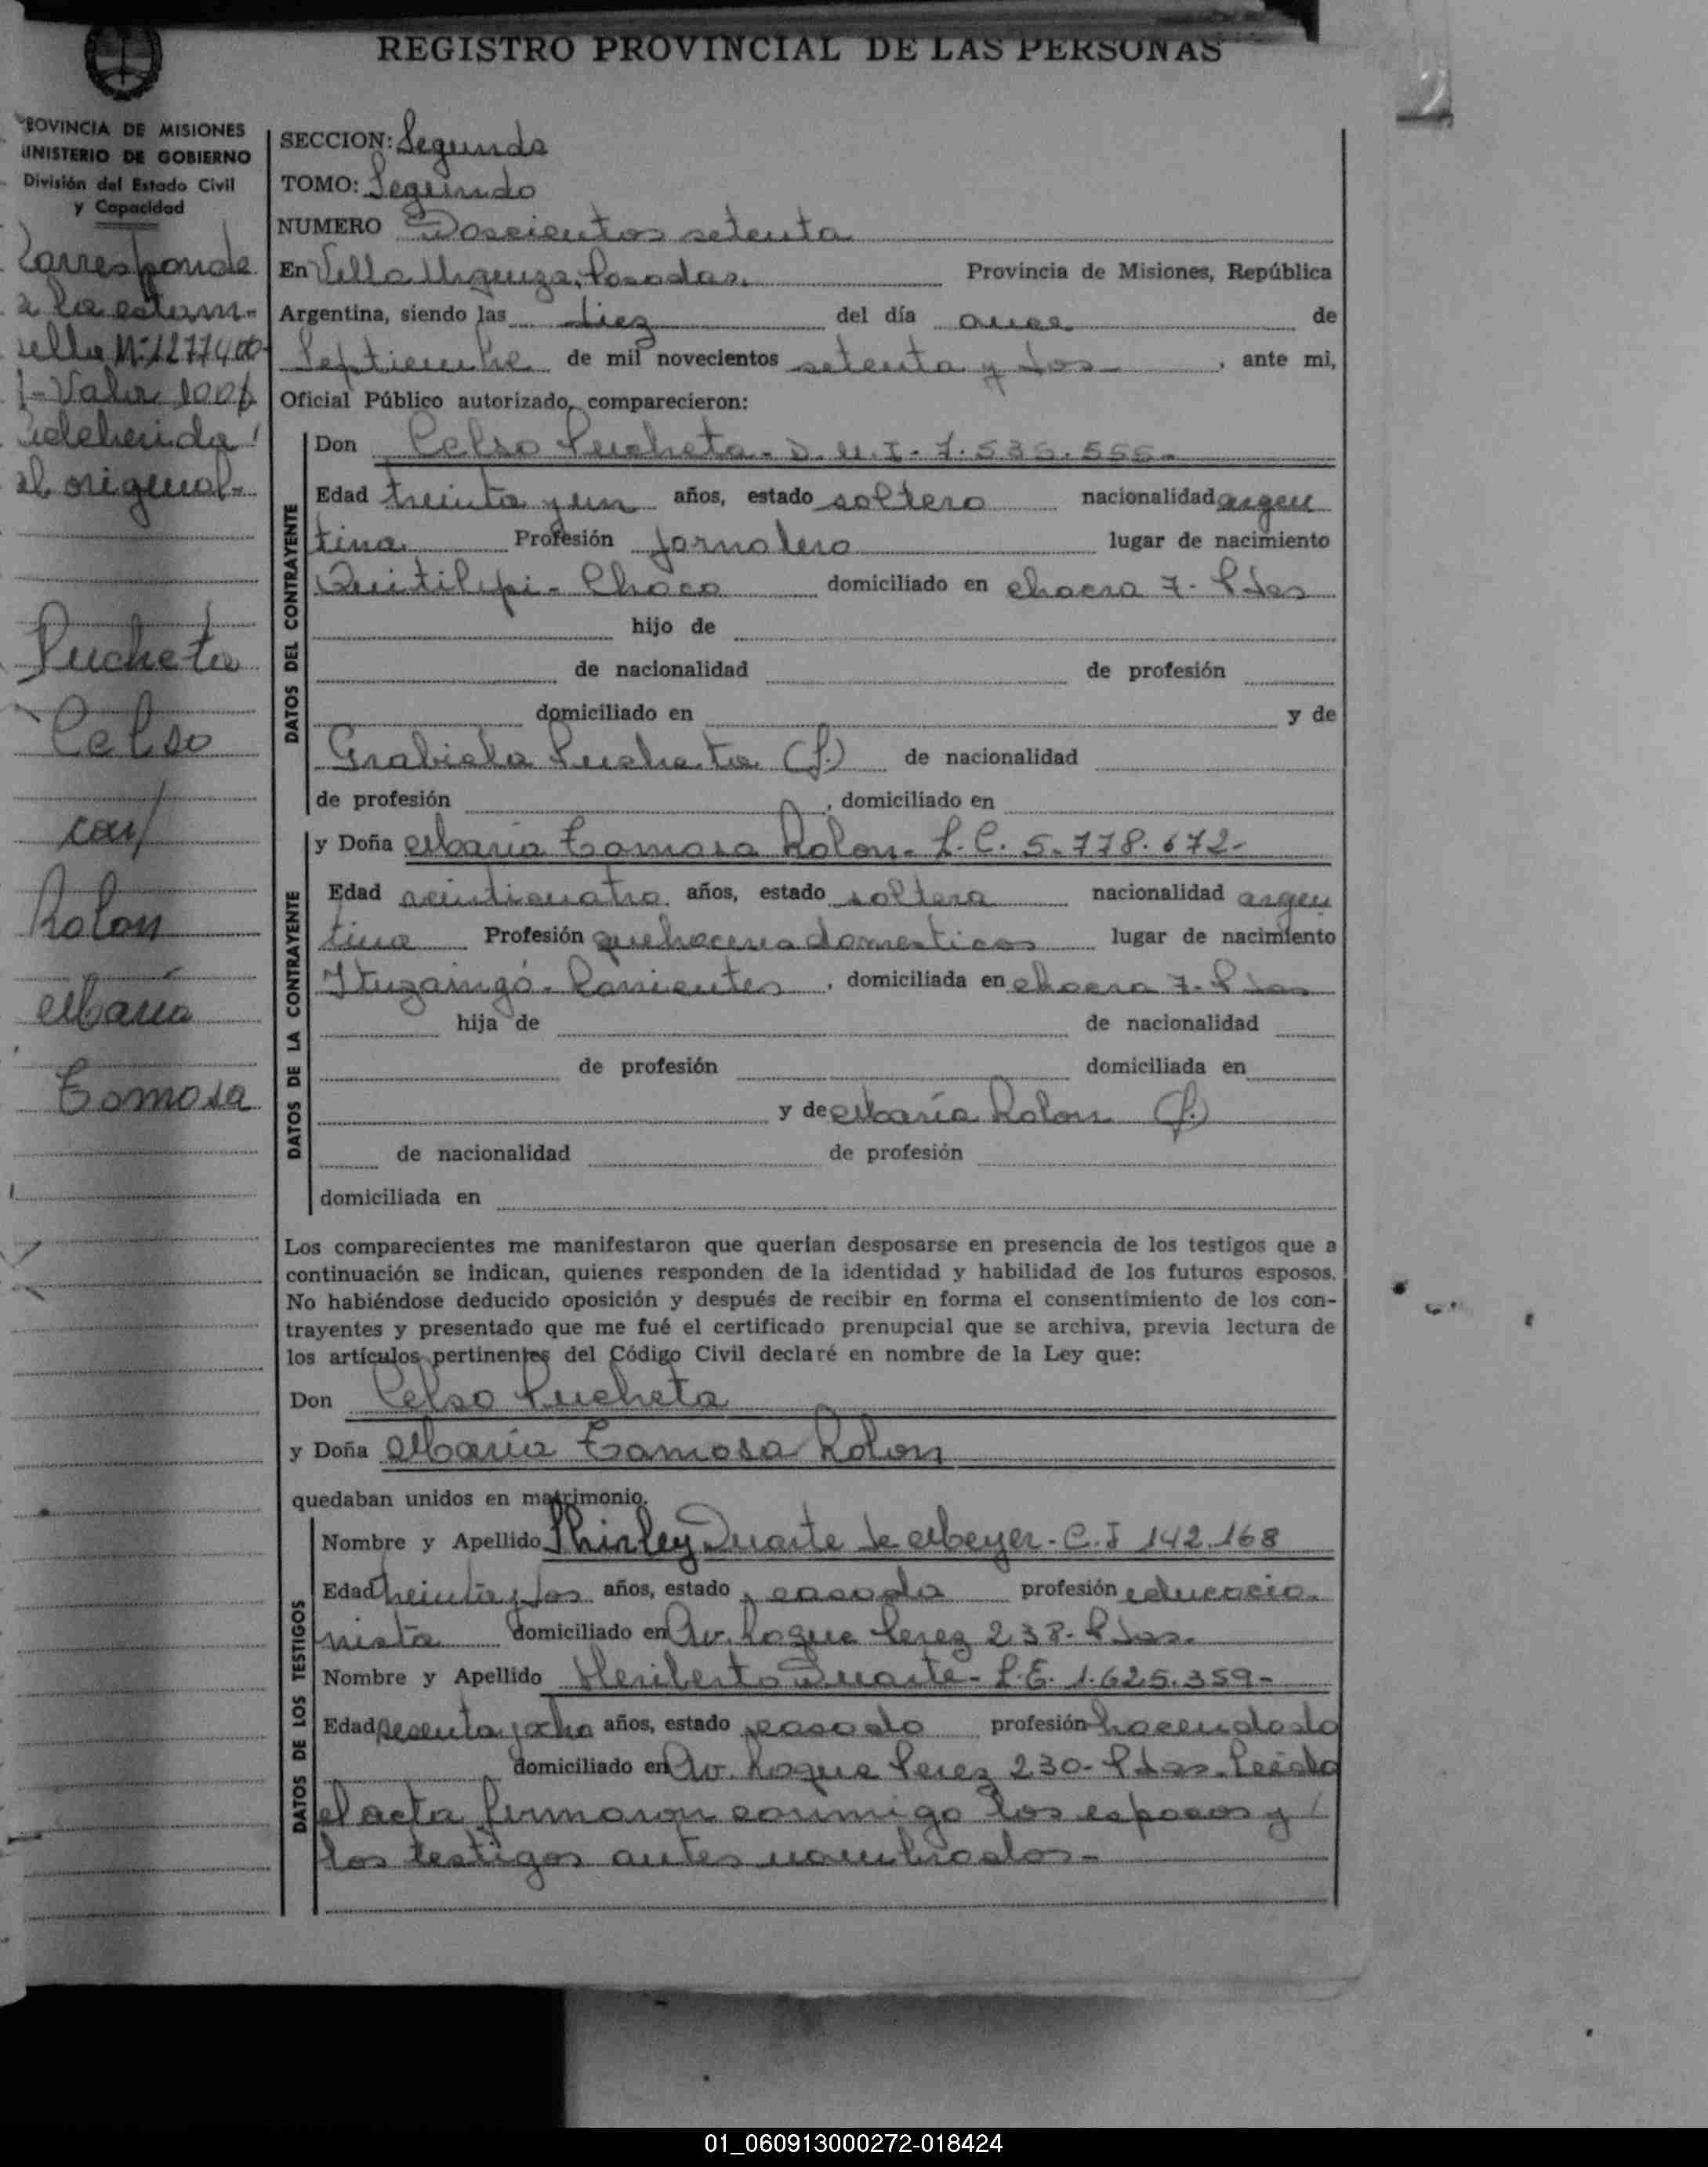 REGISTRO PROVINCIAL DE LAS PERSONAS
PROVINCIA DE MISIONES
MINISTERIO DE GOBIERNO
División del Estado Civil
y Capacidad
Corresponde
a la estam-
pilla Nº 1277400
Valor 100$
adherida
al original-
Pucheta
Celso
con/
Rolon
María
Tomasa
SECCION: Segunda
TOMO: Segundo
NUMERO Doscientos setenta
En Villa Urquiza, Posadas, Provincia de Misiones, República
Argentina, siendo las diez del día once de
Septiembre de mil novecientos setenta y dos , ante mi,
Oficial Público autorizado, comparecieron:
DATOS DEL CONTRAYENTE
Don Celso Pucheta- D.N.I- 7.535.555-
Edad treinta y un años, estado soltero nacionalidad argen
tina Profesión Jornalero lugar de nacimiento
Quitilipi- Chaco domiciliado en chacra 7- Pdas
hijo de
de nacionalidad de profesión
domiciliado en y de
Grabiela Pucheta (f.) de nacionalidad
de profesión , domiciliado en
DATOS DE LA CONTRAYENTE
y Doña María Tomasa Rolon- L.C. 5.778.672-
Edad veinticuatro años, estado soltera nacionalidad argen
tina Profesión quehaceres domesticos lugar de nacimiento
Ituzaingó- Corrientes , domiciliada en chacra 7- Pdas
hija de de nacionalidad
de profesión domiciliada en
y de María Rolon (f.)
de nacionalidad de profesión
domiciliada en
Los comparecientes me manifestaron que querían desposarse en presencia de los testigos que a
continuación se indican, quienes responden de la identidad y habilidad de los futuros esposos.
No habiéndose deducido oposición y después de recibir en forma el consentimiento de los con-
trayentes y presentado que me fué el certificado prenupcial que se archiva, previa lectura de
los artículos pertinentes del Código Civil declaré en nombre de la Ley que:
Don Celso Pucheta
y Doña María Tomasa Rolon
quedaban unidos en matrimonio.
DATOS DE LOS TESTIGOS
Nombre y Apellido Shirley Duarte de Meyer- C.I 142.168
Edad treinta y dos años, estado casada profesión educacio-
nista domiciliado en Av. Roque Perez 238- Pdas-
Nombre y Apellido Heriberto Duarte- L.E. 1.625.359-
Edad sesenta y ocho años, estado casado profesión hacendado
domiciliado en Av. Roque Perez 230- Pdas- Leída
el acta firmaron conmigo los esposos y
los testigos antes nombrados-
01_060913000272-018424